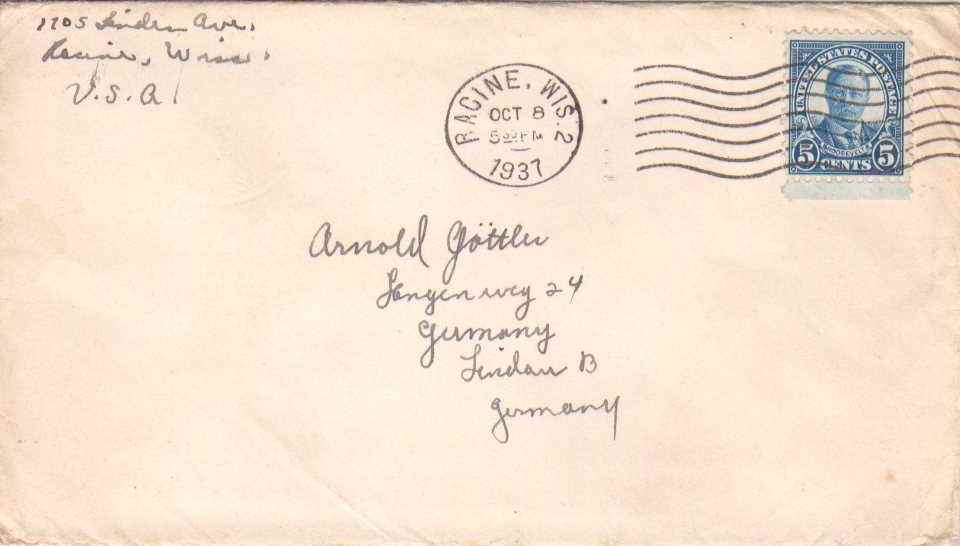 1705 Linden Ave.
Racine, Wisc.
U.S.A.
RACINE, WIS. 2
OCT 8
5 00 PM
1937
UNITED STATES POSTAGE
ROOSEVELT
5 CENTS 5
Arnold Göttler
24
Germany
Lindau B
Germany